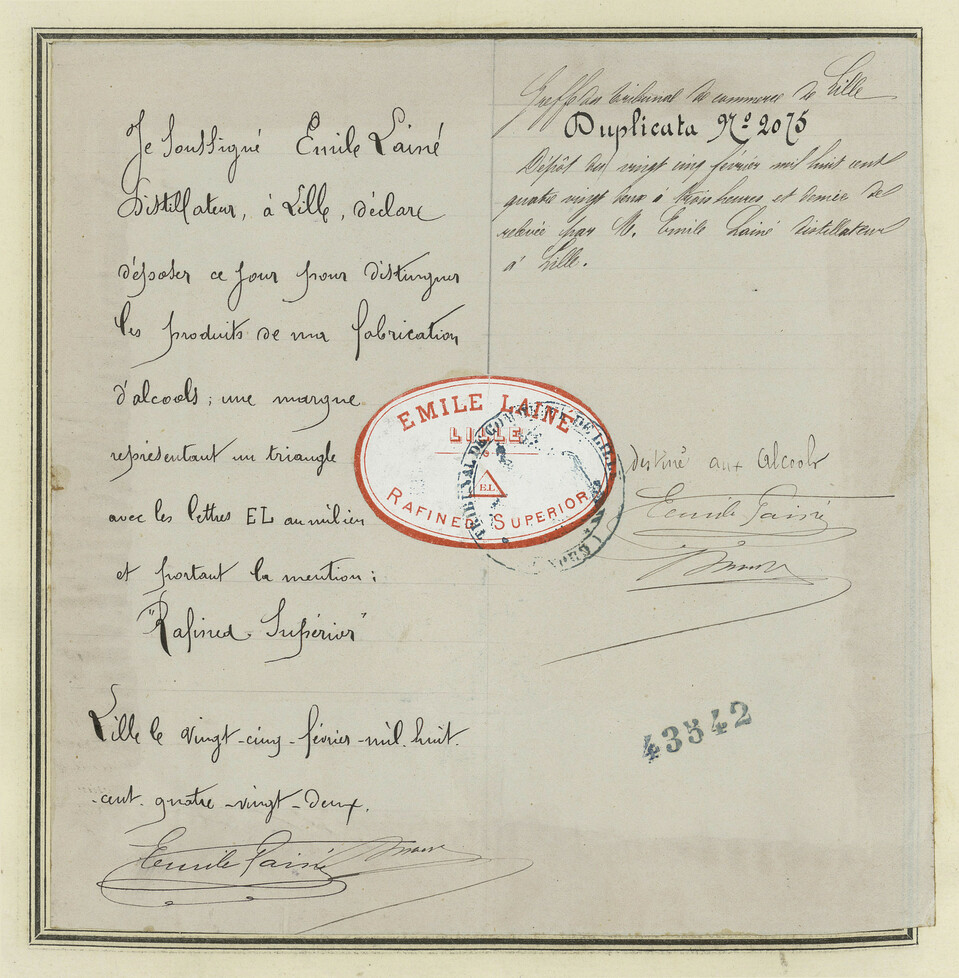 Je Soussigné Emile Lainé
Distillateur, à Lille, déclare
déposer ce jour pour distinguer
les produits de ma fabrication
d'alcools; une marque
représentant un triangle
avec les lettres EL au milieu
et portant la mention:
"Rafined Supérior"
Lille le vingt-cinq-février-mil.huit.
-cent.quatre-vingt-deux.
Emile Lainé
Greffe du tribunal de commerce de Lille
Duplicata Nº 2075
Dépôt du vingt cinq février mil huit cent
quatre vingt deux à trois heures et demie de
relevée par M. Emile Lainé distillateur
à Lille.
EMILE LAINÉ
LILLE
EL
RAFINED SUPERIOR
TRIBUNAL DE COMMERCE DE LILLE
destiné aux alcools
Emile Lainé
43542